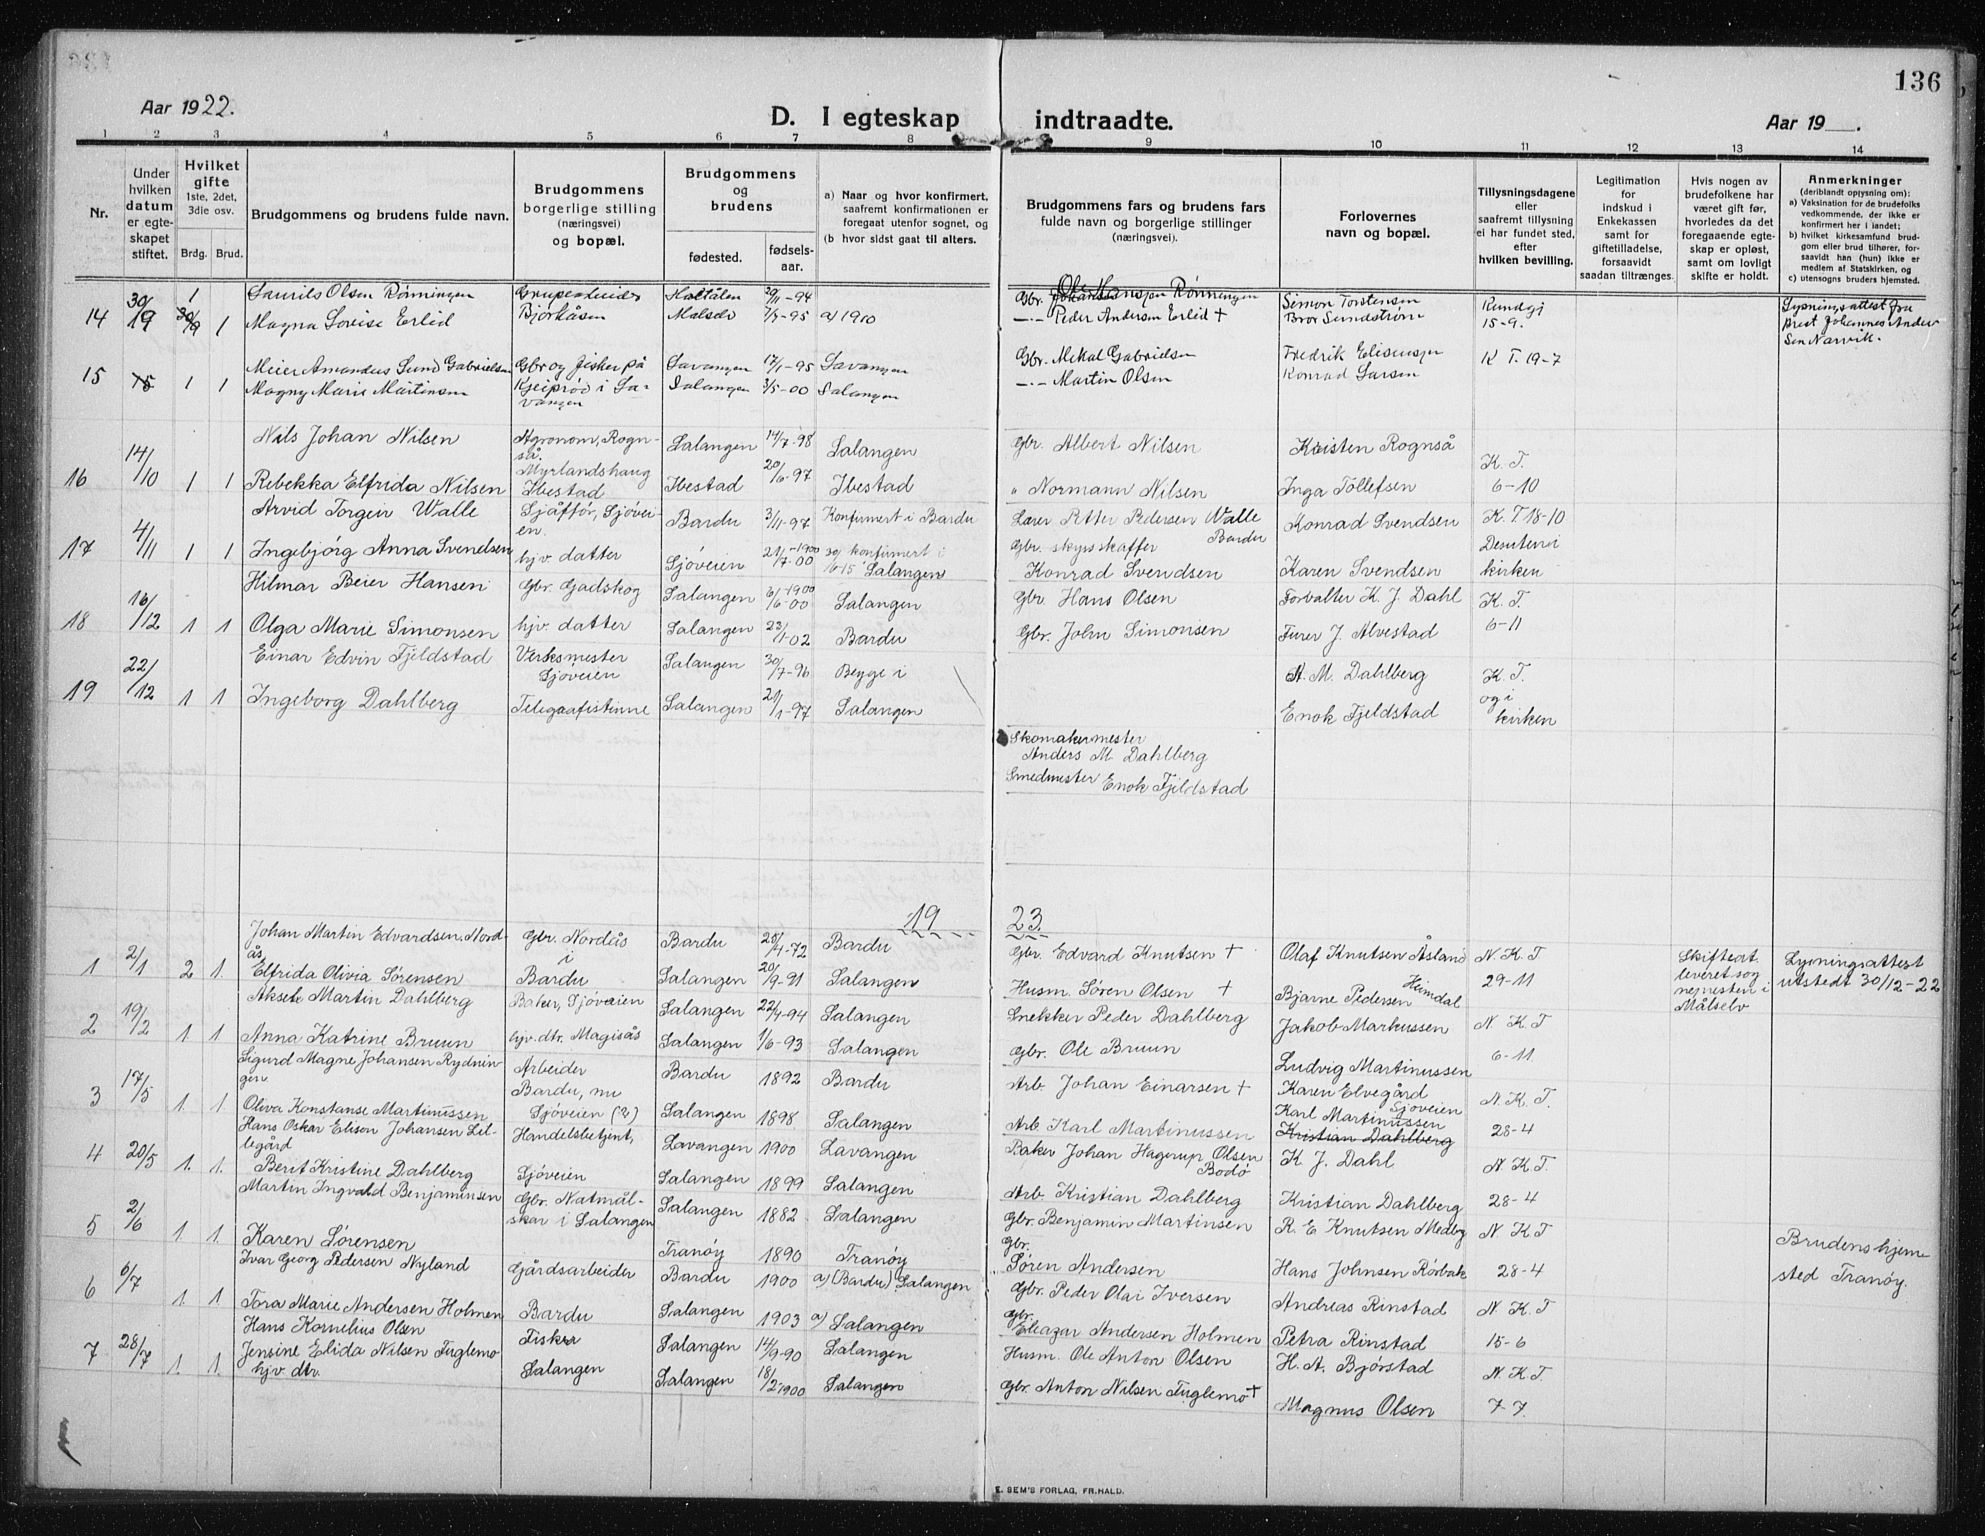 136
Aar 1922.
D. I egteskap indtraadte.
Aar 19 .
1 2 3 4 5 6 7 8 9 10 11 12 13 14
Nr.
Under hvilken datum er egteskapet stiftet.
Hvilket gifte 1ste, 2det, 3die osv.
Brdg. Brud.
Brudgommens og brudens fulde navn.
Brudgommens borgerlige stilling (næringsvei) og bopæl.
Brudgommens og brudens
fødested.
fødselsaar.
a) Naar og hvor konfirmert, saafremt konfirmationen er foregaat utenfor sognet, og
(b hvor sidst gaat til alters.
Brudgommens fars og brudens fars fulde navn og borgerlige stillinger (næringsvei).
Forlovernes navn og bopæl.
Tillysningsdagene eller saafremt tillysning ei har fundet sted, efter hvilken bevilling.
Legitimation for indskud i Enkekassen samt for giftetilladelse, forsaavidt saadan tiltrænges.
Hvis nogen av brudefolkene har været gift før, hvorledes da det foregaaende egteskap er opløst, samt om lovligt skifte er holdt.
Anmerkninger (deriblandt opjysning om):
a) Vaksination for de brudefolks vedkommende, der ikke er konfirmert her i landet;
b) hvilket kirkesamfund brudgom eller brud tilhører, forsaavidt han (hun) ikke er medlem af Statskirken, og
c) utensogns brudens hjemsted.
14 30/9 1 Laurits Olsen Rønningen Grubearbeider Holtålen 29/11-94 Gbr. Ole Hansen Rønningen Simon Torstensen Kundgj Lysningsattest fra
1 Magna Lovise Erlid Bjørkåsen Målselv 7/7-95 a) 1910 -"- Peder Andersen Erlid + Bror Sundstrøm 15-9. Prest Johannes Andersen Narvik.
15 1 1 Meier Amandus Sund Gabrielsen Gbr og fisker på Lavangen 17/1-95 Lavangen Gbr. Mekal Gabrielsen Fredrik Elisensen K T. 19-7
Magny Marie Martinsen Kjeiprød i Lavangen Salangen 3/5-00 Salangen -"- Martin Olsen Konrad Larsen
16 14/10 1 1 Nils Johan Nilsen Agronom, Rognså. Salangen 14/7-98 Salangen Gbr. Albert Nilsen Kristen Rognså K. T.
Rebekka Elfrida Nilsen Myrlandshaug Ibestad Ibestad 20/6-97 Ibestad " Normann Nilsen Inga Tollefsen 6-10
17 4/11 1 1 Arvid Torgeir Walle Sjåfför, Sjøveien. Bardu 3/11-97 Konfirmert i Bardu Lærer Petter Pedersen Walle Bardu Konrad Svendsen K. T. 18-10
Ingebjørg Anna Svendsen hjv. datter Sjøveien 21/7-00 konfirmert i Salangen Gbr. skysskaffer Konrad Svendsen Karen Svendsen Desuten i kirken
18 16/12 1 1 Hilmar Beier Hansen Gbr. Gadskog Salangen 6/6-00 Salangen Gbr. Hans Olsen Forvalter K. J. Dahl K. T.
Olga Marie Simonsen hjv. datter Salangen 23/1-02 Bardu Gbr. John Simonsen Furer J. Alvestad 6-11
19 22/12 1 1 Einar Edvin Fjeldstad Verksmester Sjøveien Salangen 30/7-96 Begge i A. M. Dahlberg K. T.
Ingeborg Dahlberg Telegrafistinne Salangen 21/1-97 Salangen Enok Fjeldstad og i kirken
Skomakermester
Anders M. Dahlberg
Smedmester Enok Fjeldstad
1923.
1 2/1 2 1 Johan Martin Edvardsen Nordås Gbr. Nordås i Bardu 25/4-72 Bardu Gbr. Edvard Knutsen + Olaf Knutsen Åsland N. K. T Skifteat leveret sognepresten i Målselv Lysningsattest utstedt 30/12-22
Elfrida Olivia Sørensen Bardu Salangen 20/9-91 Salangen Husm. Søren Olsen + Bjarne Pedersen Heimdal 29-11
2 19/2 1 1 Aksel Martin Dahlberg Baker, Sjøveien Salangen 22/4-94 Salangen Snekker Peder Dahlberg Jakob Markussen N. K. T
Anna Katrine Bruun hjv. dtr. Magisås Salangen 1/6-93 Salangen Gbr. Ole Bruun Ludvig Martinussen 6-11
3 17/5 1. 1. Sigurd Magne Johansen Rydningen Arbeider Bardu 1892 Bardu Arb. Johan Einarsen + Karen Elvegård Sjøveien N. K. T.
Oliva Konstanse Martinussen Bardu, nu Sjøveien (?) Salangen 1898 Salangen Arb. Karl Martinussen Karl Martinussen 28-4
4 20/5 1. 1. Hans Oskar Elison Johansen Lillegård Handelsbetjent, Lavangen 1900 Lavangen Baker Johan Hagerup Olsen Bodø Kristian Dahlberg K. J. Dahl N K T.
Berit Kristine Dahlberg Sjøveien Salangen 1899 Salangen Arb. Kristian Dahlberg Kristian Dahlberg 28-4
5 2/6 1 1 Martin Ingvald Benjaminsen Gbr. Natmålskar i Salangen Salangen 1882 Salangen Gbr. Benjamin Martinsen R. E Knutsen Medby N. K. T Brudens hjemsted Tranøy.
Karen Sørensen Tranöy 1890 Tranöy Gbr. Søren Andersen Hans Johnsen Rörbak 28-4
6 6/7 1. 1 Ivar Georg Pedersen Nyland Gårdsarbeider Bardu 1900 a) (Bardu) Salangen Gbr. Peder Olai Iversen Andreas Rinstad N. K. T
Tora Marie Andersen Holmen Bardu Salangen 1903 a) Salangen Gbr. Eleazar Andersen Holmen Petra Rinstad 15-6
7 28/7 1. 1. Hans Kornelius Olsen Fisker Salangen 14/9-90 Salangen Husm. Ole Anton Olsen H. A. Bjørstad N. K. T.
Jensine Elida Nilsen Fuglemo hjv. dtr. Salangen Salangen 18/2-1900 Salangen Gbr. Anton Nilsen Fuglemo + Magnus Olsen 7-7.
E. SEM'S FORLAG, FR.HALD.